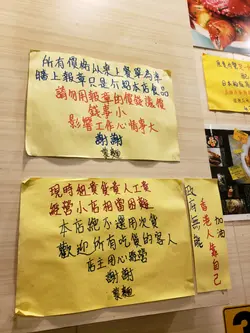 所有價錢以桌上餐單為準
牆上報章只是介紹本店食品
請勿用報章的價錢落價
錢事小
影響工作心情事大
謝謝
現時租貴食貴人工貴
經營小店相當困難
本店絕不選用次貨
歡迎所有吃貨的客人
店主用心經營
謝謝
政府無能
香港人靠自己
加油